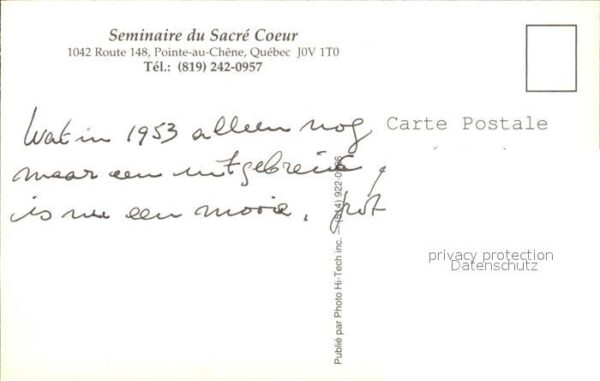 Seminaire du Sacré Coeur
1042 Route 148, Pointe-au-Chêne, Québec J0V 1T0
Tél.: (819) 242-0957
Carte Postale
Wat in 1953 alleen nog
maar een uitgebreid
is nu een mooie,
Publié par Photo Hi-Tech inc. — (514) 922-
privacy protection
Datenschutz